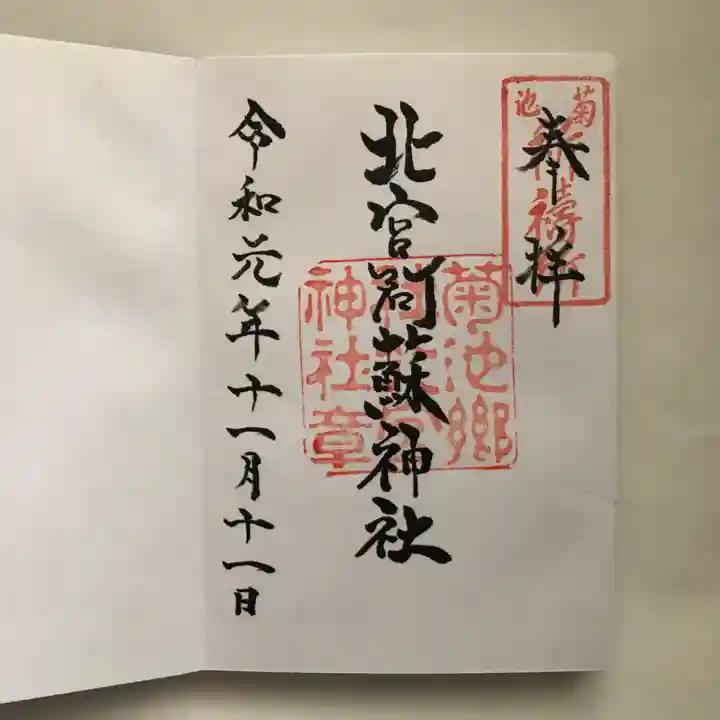 奉拝
菊池
北宮阿蘇神社
菊池郷
神社章
令和元年十一月十一日